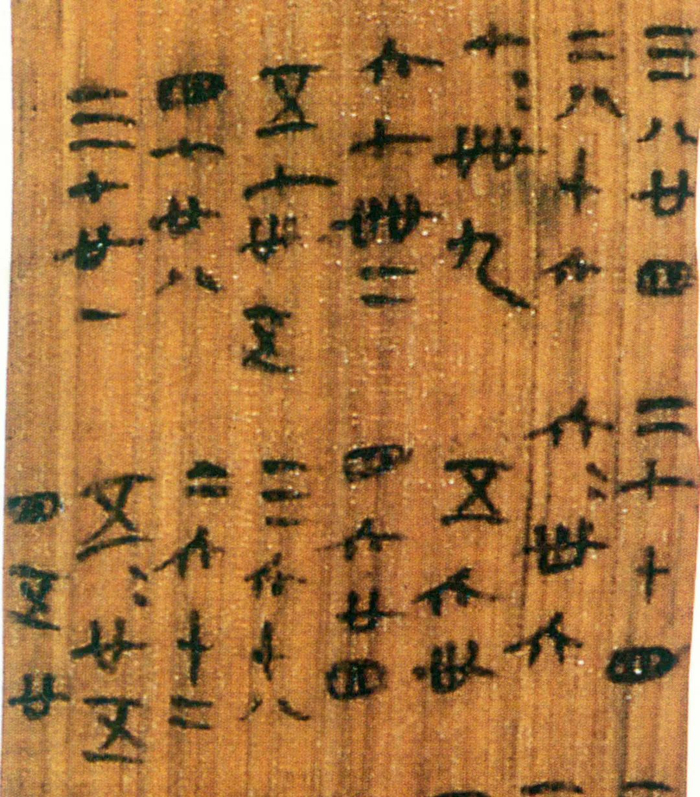 三八廿四
二八十六
七〓卌九
六七卌二
五七卅五
四七廿八
三七廿一
二七十四
六〓卅六
五六卅
四六廿四
三六十八
二六十二
五〓廿五
四五廿